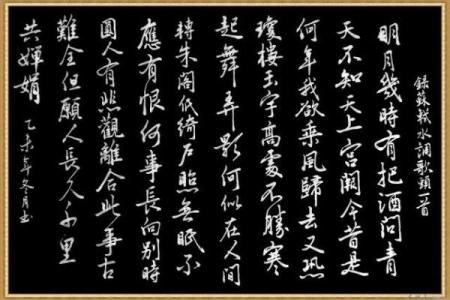 録蘇軾水調歌頭一首
明月幾時有把酒問青
天不知天上宮闕今昔是
何年我欲乘風歸去又恐
瓊樓玉宇高處不勝寒
起舞弄影何似在人間
轉朱閣低綺戶照無眠不
應有恨何事長向別時
圓人有悲觀離合此事古
難全但願人長久千里
共嬋娟
乙未年冬月書